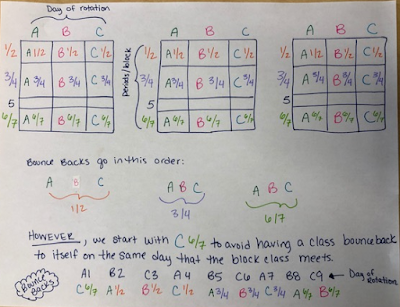 Day of rotation
A B C A B C A B C
1/2 A 1/2 B 1/2 C 1/2 1/2 A 1/2 B 1/2 C 1/2 1/2 A 1/2 B 1/2 C 1/2
periods/block
3/4 A 3/4 B 3/4 C 3/4 3/4 A 3/4 B 3/4 C 3/4 3/4 A 3/4 B 3/4 C 3/4
5 5 5
6/7 A 6/7 B 6/7 C 6/7 6/7 A 6/7 B 6/7 C 6/7 6/7 A 6/7 B 6/7 C 6/7
Bounce Backs go in this order:
A B C A B C A B C
1/2 3/4 6/7
HOWEVER, we start with C 6/7 to avoid having a class bounce back
to itself on the same day that the block class meets.
A1 B2 C3 A4 B5 C6 A7 B8 C9 Day of
rotation
Bounce
Backs
C 6/7 A 1/2 B 1/2 C 1/2 A 3/4 B 3/4 C 3/4 A 6/7 B 6/7